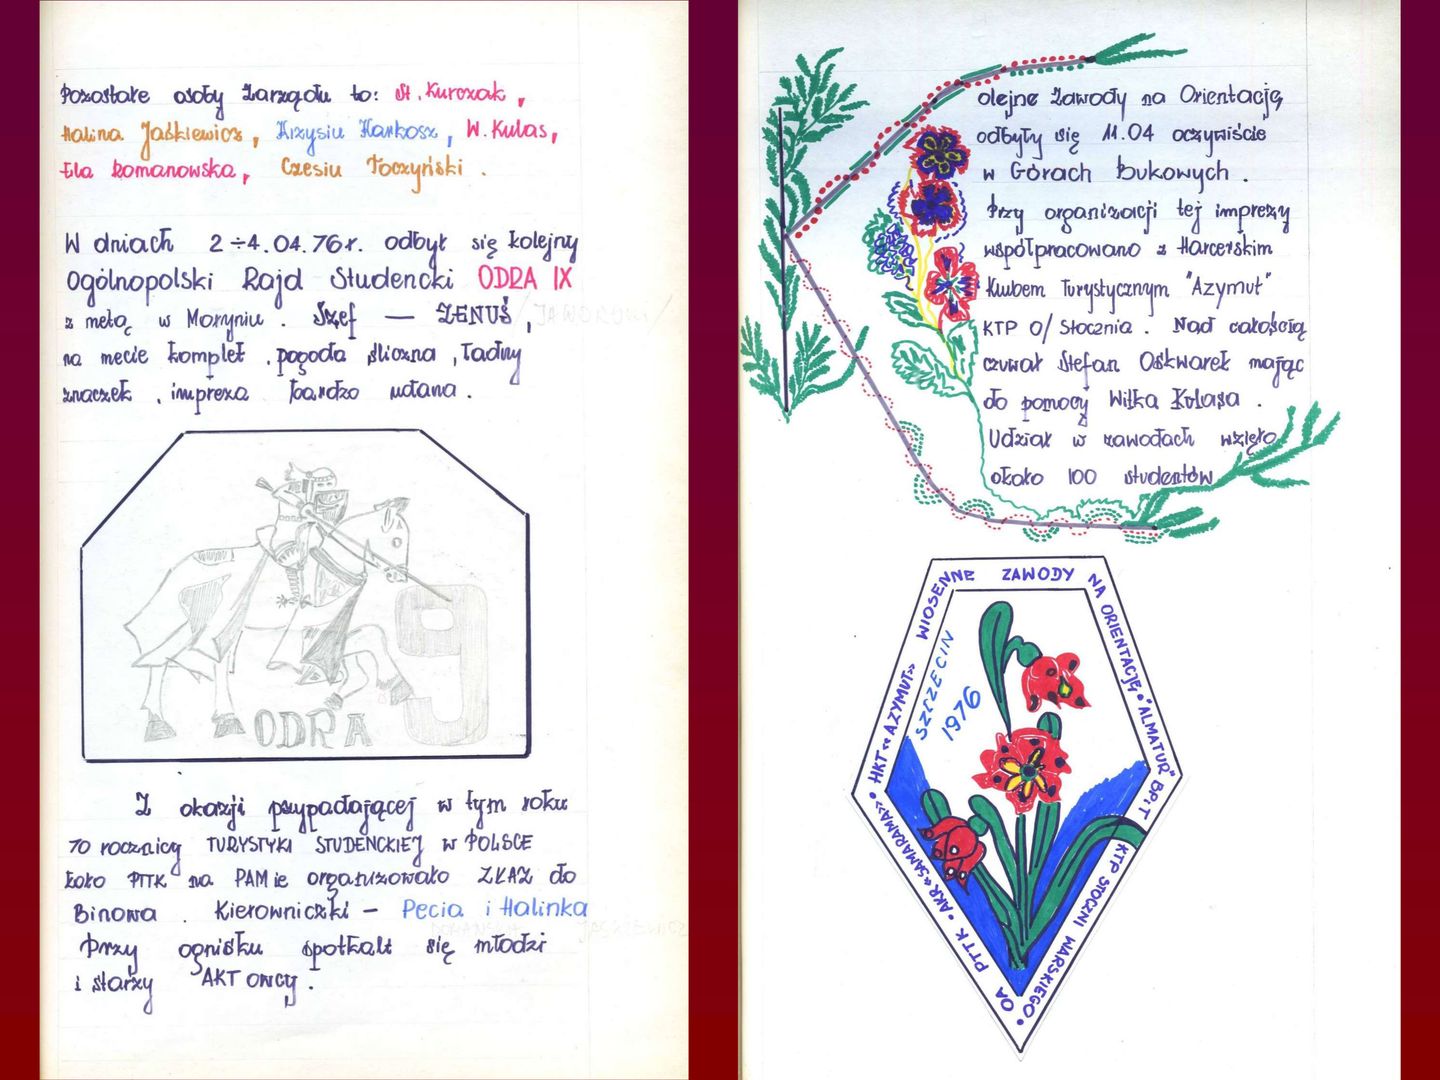 Pozostałe osoby Zarządu to: St. Kurczak,
Halina Jaśkiewicz, Krzysiu Markosz, W. Kulas,
Ela Romanowska, Czesiu Toczyński.
W dniach 2÷4.04.76r. odbył się kolejny
Ogólnopolski Rajd Studencki ODRA IX
z metą w Moryniu. Szef — ZENUŚ, /JAWORSKI/
na mecie komplet, pogoda śliczna, ładny
znaczek, impreza bardzo udana.
9
ODRA
Z okazji przypadającej w tym roku
70 rocznicy TURYSTYKI STUDENCKIEJ w POLSCE
koło PTTK na PAMie organizowało ZLAZ do
Binowa. Kierowniczki – Pecia i Halinka
DOMAŃSKA JAŚKIEWICZ
Przy ognisku spotkali się młodzi
i starzy AKTowcy.
Kolejne Zawody na Orientację
odbyły się 11.04 oczywiście
w Górach Bukowych.
Przy organizacji tej imprezy
współpracowano z Harcerskim
Klubem Turystycznym "Azymut"
KTP O/Stocznia. Nad całością
czuwał Stefan Oskwarek mając
do pomocy Wilka Kulasa.
Udział w zawodach wzięło
około 100 studentów
WIOSENNE ZAWODY NA ORIENTACJĘ • "ALMATUR" BPiT KTP STOCZNI WARSKIEGO • OA PTTK • AKR «SAMARAMA» • HKT «AZYMUT»
SZCZECIN
1976